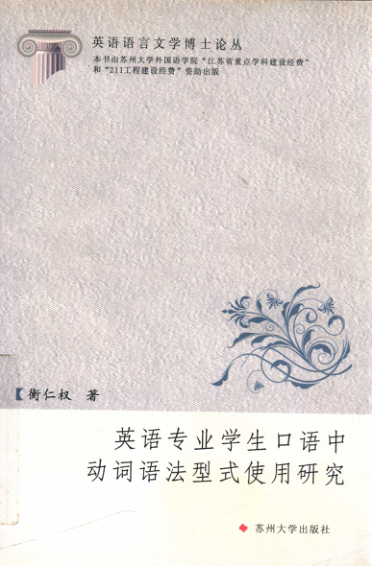 英语语言文学博士论丛
本书由苏州大学外国语学院“江苏省重点学科建设经费”
和“211工程建设经费”资助出版
【衡仁权 著
英语专业学生口语中
动词语法型式使用研究
苏州大学出版社